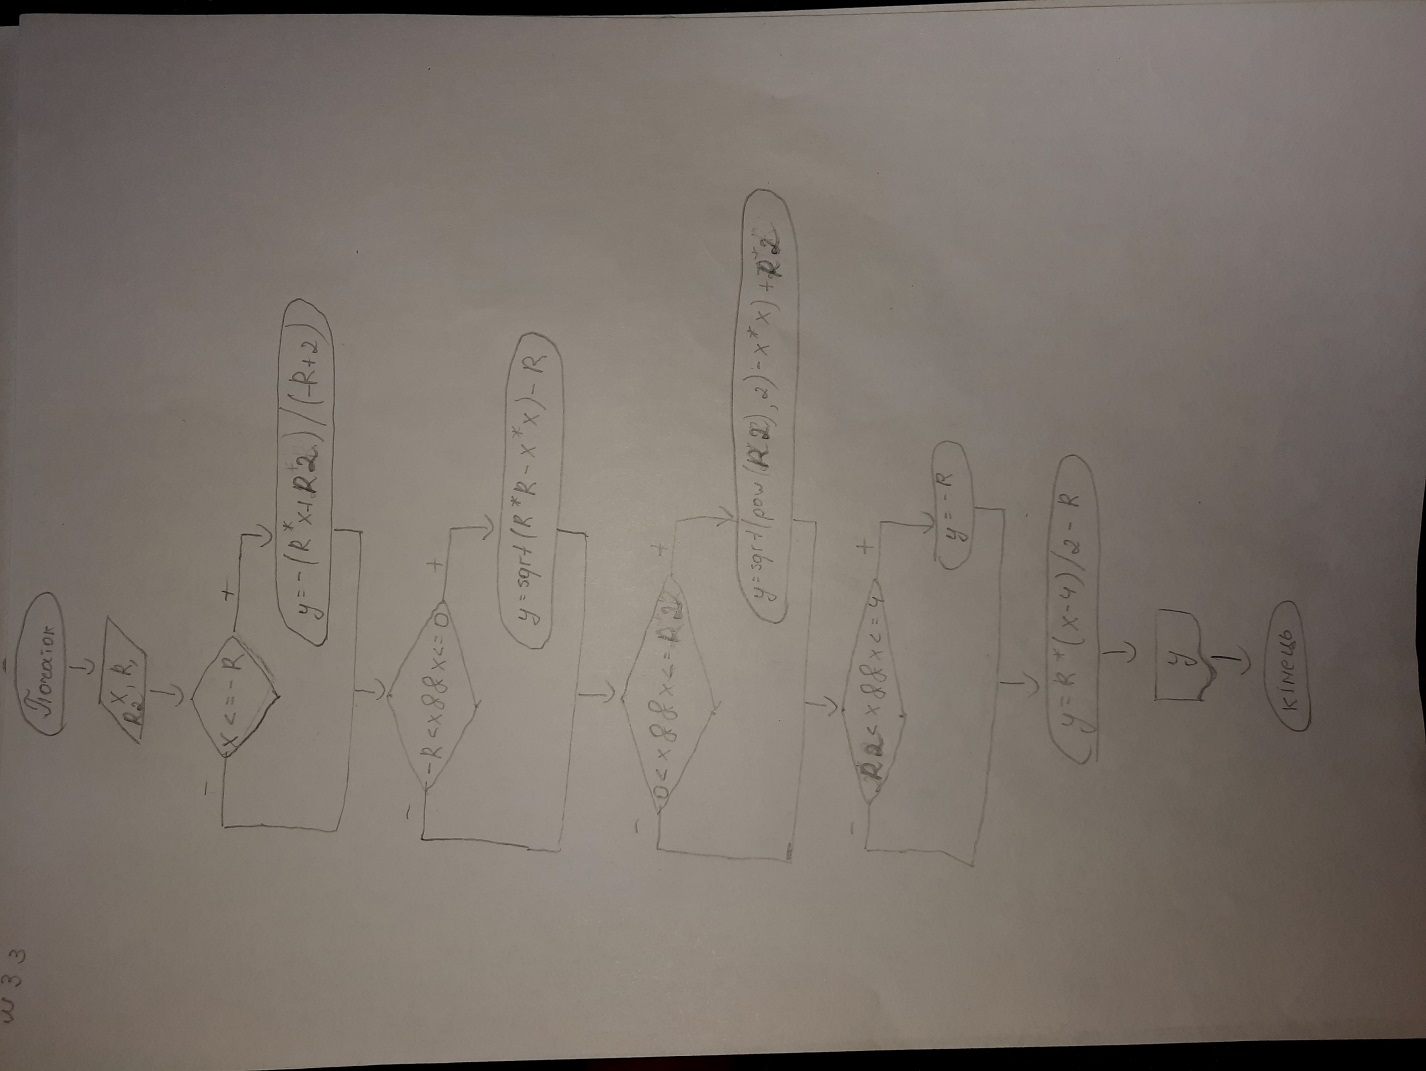 w 3 3
Початок
x, R,
R2
x <= -R
+
-
y = -(R*x+R2)/(-R+2)
-R<x&&x<=0
+
-
y=sqrt(R*R-x*x)-R
0<x&&x<=R2
+
-
y=sqrt(pow(R2),2)-x*x)+R2
R2<x&&x<=4
+
-
y=-R
y=R*(x-4)/2-R
y
кінець